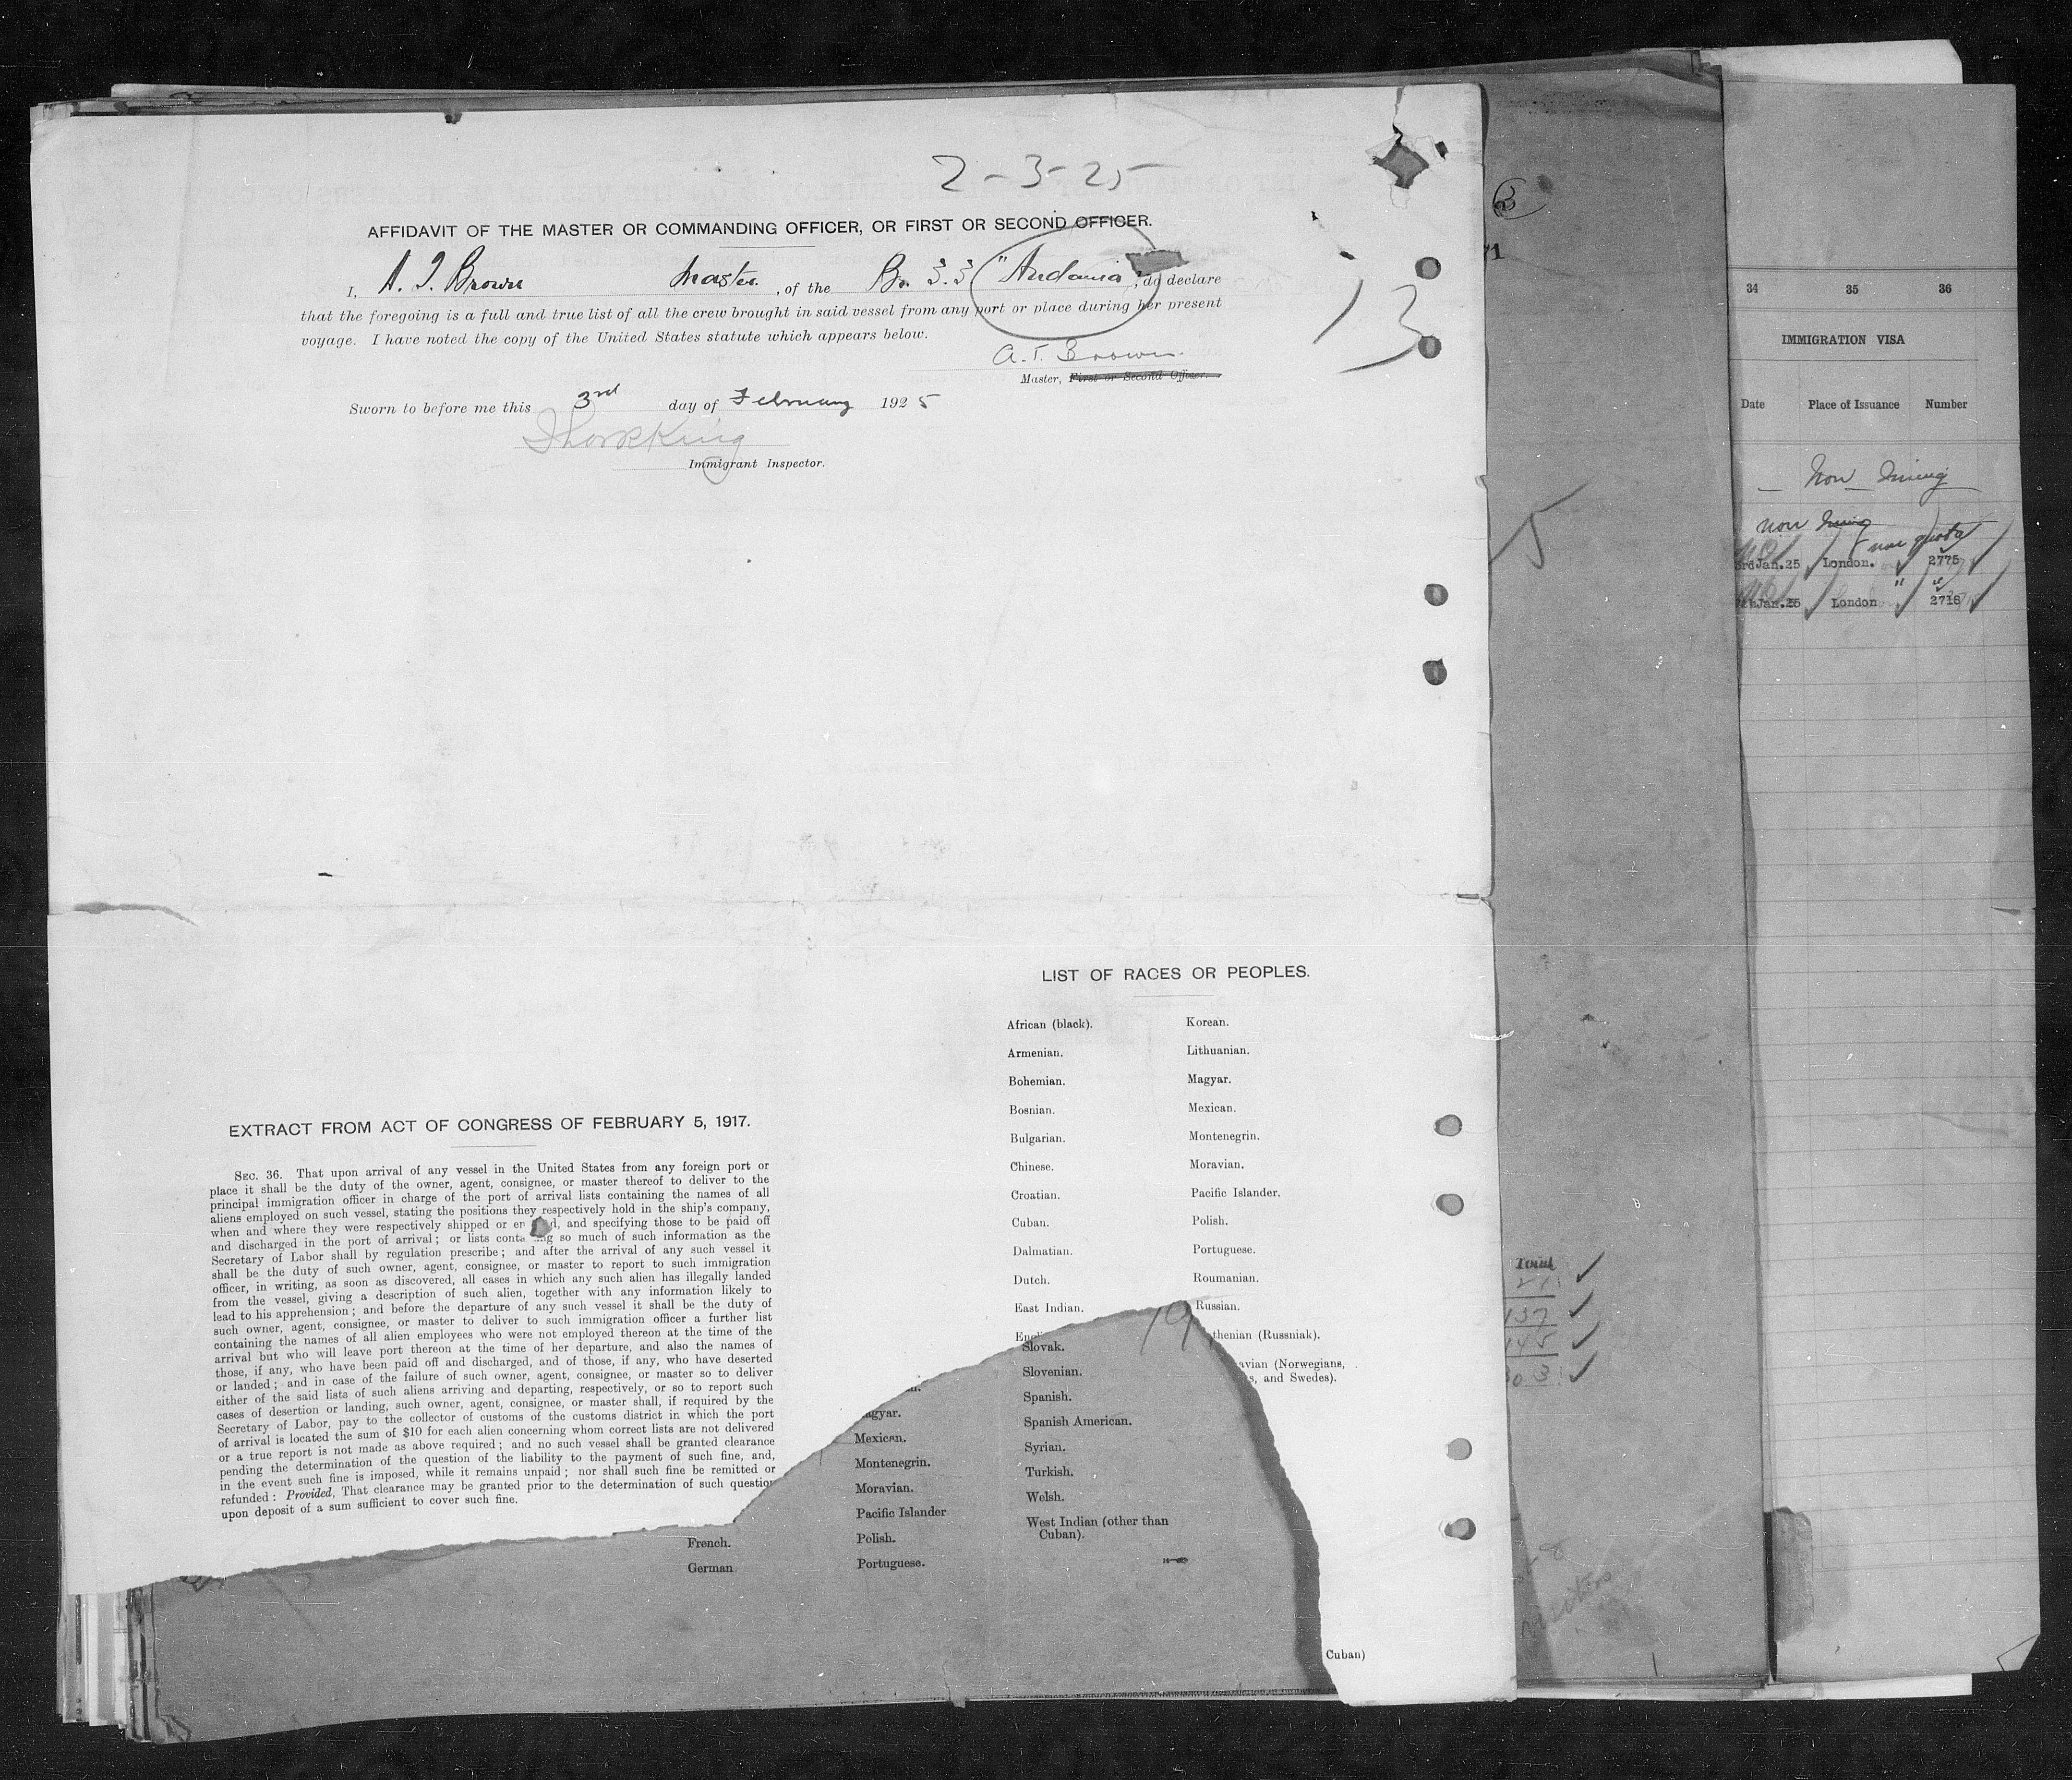 2-3-25
AFFIDAVIT OF THE MASTER OR COMMANDING OFFICER, OR FIRST OR SECOND OFFICER.
I, A. T. Brown Master, of the Br. S.S "Andania", do declare
that the foregoing is a full and true list of all the crew brought in said vessel from any port or place during her present
voyage. I have noted the copy of the United States statute which appears below.
A. T. Brown.
Master, First or Second Officer.
Sworn to before me this 3rd day of February 1925
Immigrant Inspector.
13
EXTRACT FROM ACT OF CONGRESS OF FEBRUARY 5, 1917.
SEC. 36. That upon arrival of any vessel in the United States from any foreign port or
place it shall be the duty of the owner, agent, consignee, or master thereof to deliver to the
principal immigration officer in charge of the port of arrival lists containing the names of all
aliens employed on such vessel, stating the positions they respectively hold in the ship's company,
when and where they were respectively shipped or en d, and specifying those to be paid off
and discharged in the port of arrival; or lists conta ng so much of such information as the
Secretary of Labor shall by regulation prescribe; and after the arrival of any such vessel it
shall be the duty of such owner, agent, consignee, or master to report to such immigration
officer, in writing, as soon as discovered, all cases in which any such alien has illegally landed
from the vessel, giving a description of such alien, together with any information likely to
lead to his apprehension; and before the departure of any such vessel it shall be the duty of
such owner, agent, consignee, or master to deliver to such immigration officer a further list
containing the names of all alien employees who were not employed thereon at the time of the
arrival but who will leave port thereon at the time of her departure, and also the names of
those, if any, who have been paid off and discharged, and of those, if any, who have deserted
or landed; and in case of the failure of such owner, agent, consignee, or master so to deliver
either of the said lists of such aliens arriving and departing, respectively, or so to report such
cases of desertion or landing, such owner, agent, consignee, or master shall, if required by the
Secretary of Labor, pay to the collector of customs of the customs district in which the port
of arrival is located the sum of $10 for each alien concerning whom correct lists are not delivered
or a true report is not made as above required; and no such vessel shall be granted clearance
pending the determination of the question of the liability to the payment of such fine, and,
in the event such fine is imposed, while it remains unpaid; nor shall such fine be remitted or
refunded: Provided, That clearance may be granted prior to the determination of such question
upon deposit of a sum sufficient to cover such fine.
LIST OF RACES OR PEOPLES.
African (black).
Armenian.
Bohemian.
Bosnian.
Bulgarian.
Chinese.
Croatian.
Cuban.
Dalmatian.
Dutch.
East Indian.
Korean.
Lithuanian.
Magyar.
Mexican.
Montenegrin.
Moravian.
Pacific Islander.
Polish.
Portuguese.
Roumanian.
Russian.
thenian (Russniak).
avian (Norwegians,
s, and Swedes).
Cuban)
French.
German
agyar.
Mexican.
Montenegrin.
Moravian.
Pacific Islander
Polish.
Portuguese.
Slovak.
Slovenian.
Spanish.
Spanish American.
Syrian.
Turkish.
Welsh.
West Indian (other than
Cuban).
19
3
71
5
Total
137
145
303
34 35 36
IMMIGRATION VISA
Date Place of Issuance Number
Non Immig
non Immig
non quota
3rdJan.25 London. 2775
7thJan.25 London 2718